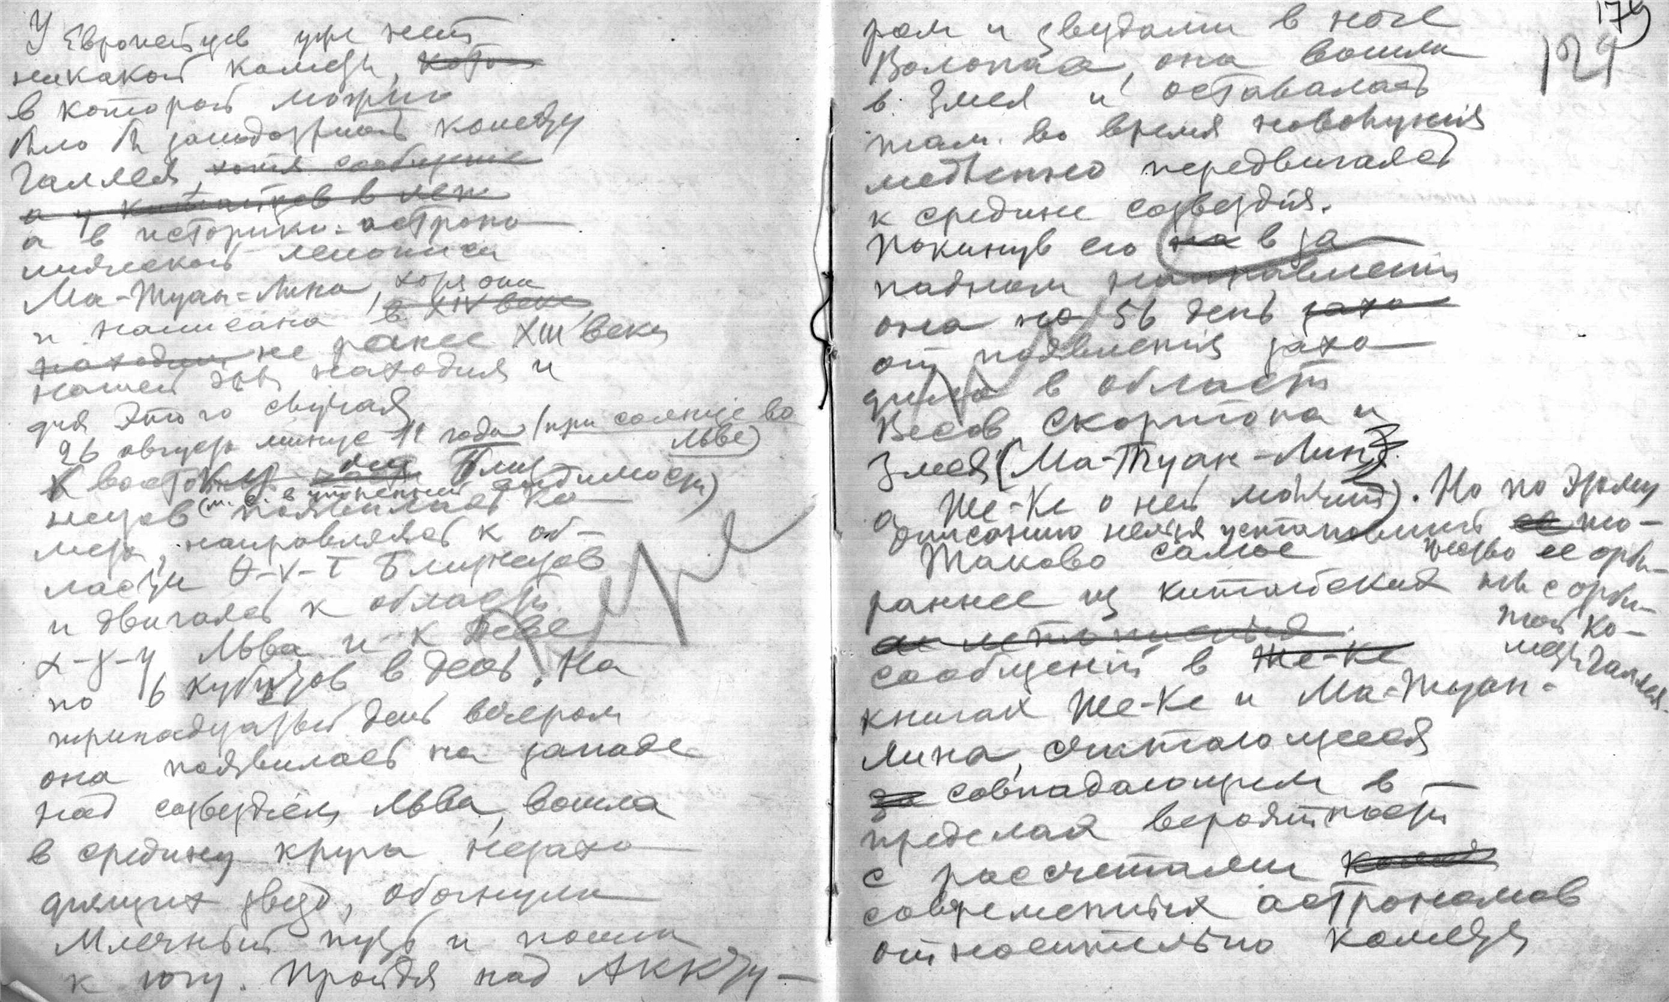 У Европейцев уже нет
никакой кометы, котор
в которой можно
было бы заподозрить комету
Галлея, хотя сообщение
а у Китайцев в
а в историко-астроно
мической летописи
Ма-Туан-Лина, хотя она
и написана в XIV веке
находим не ранее XIII века
нашей эры находим и
для этого случая
26 августа минус 11 года (при солнце во
Льве)
К востоку Близ
нецов (т. е. в утренней видимости)
появилась ко
мета, направляясь к об-
ласти θ-ν-τ Близнецов
и двигаясь к области
α-γ-η Льва и к Деве
по 6 кубитов в день. На
тринадцатый день вечером
она появилась на западе
над созвездием Льва, вошла
в средину круга незахо
дящих звезд, обогнула
Млечный путь и пошла
к югу. Пройдя над Аркту-
179
129
ром и звездами в ноге
Волопаса, она вошла
в Змея и оставалась
там во время новолуния
медленно передвигаясь
к средине созвездия.
Покинув его на в за
падном направлении
она на 56 день захо
от появления захо
дила в области
Весов Скорпиона и
Змея (Ма-Туан-Лин,
а Ше-Ке о ней молчит). Но по этому
описанию нельзя установить ее то-
жество ее орби-
ты с орби-
той ко-
меты Галлея.
Таково самое
раннее из китайских
сообщений в Ше-Ке
книгах Ше-Ке и Ма-Туан-
Лина, считающееся
за совпадающим в
пределах вероятности
с рассчетами
современных астрономов
относительно кометы